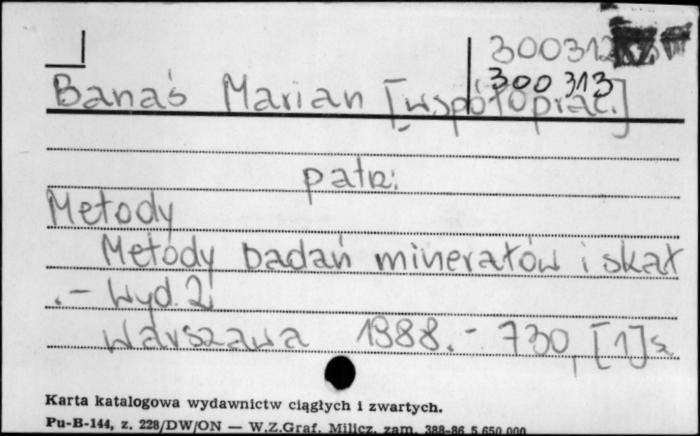 300312
300 313
Banaś Marian [współoprac.]
patrz:
Metody
Metody badań minerałów i skał
.- Wyd. 2
Warszawa 1988.- 730, [1] s.
Karta katalogowa wydawnictw ciągłych i zwartych.
Pu-B-144, z. 228/DW/ON — W.Z.Graf. Milicz, zam. 388-86 5.650.000